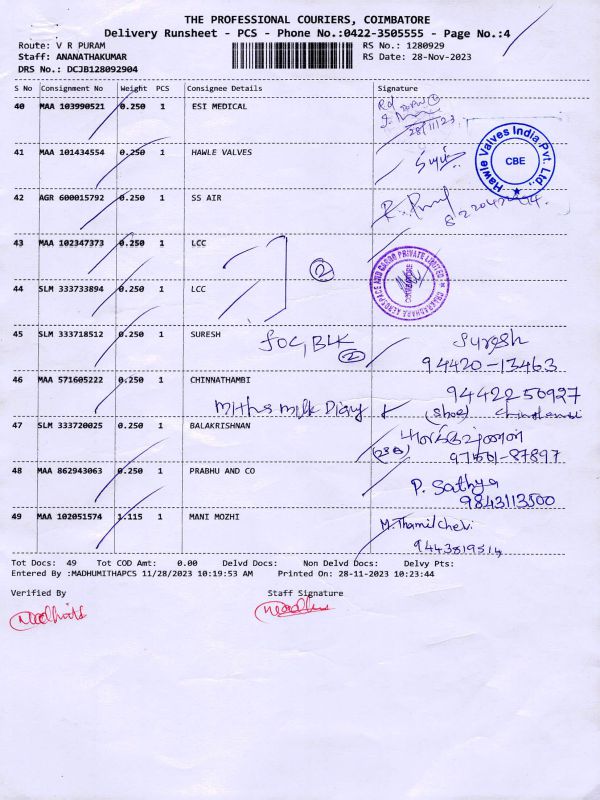 THE PROFESSIONAL COURIERS, COIMBATORE
Delivery Runsheet - PCS - Phone No.:0422-3505555 - Page No.:4
Route: V R PURAM RS No.: 1280929
Staff: ANANATHAKUMAR RS Date: 28-Nov-2023
DRS No.: DCJB128092904
S No Consignment No Weight PCS Consignee Details Signature
40 MAA 103990521 0.250 1 ESI MEDICAL
28/11/23
41 MAA 101434554 0.250 1 HAWLE VALVES
Hawle Valves India Pvt. Ltd.,
CBE
42 AGR 600015792 0.250 1 SS AIR
43 MAA 102347373 0.250 1 LCC
2
44 SLM 333733894 0.250 1 LCC
AEROSPACE AND CARGO PRIVATE LIMITED
COIMBATORE
45 SLM 333718512 0.250 1 SURESH
FOC, BLK
2
Suresh
94420-13463
46 MAA 571605222 0.250 1 CHINNATHAMBI
9442250927
Milk
47 SLM 333720025 0.250 1 BALAKRISHNAN
97501-87897
48 MAA 862943063 0.250 1 PRABHU AND CO
P. Sathya
9843113500
49 MAA 102051574 1.115 1 MANI MOZHI
M. Thamilchelvi
9443819514
Tot Docs: 49 Tot COD Amt: 0.00 Delvd Docs: Non Delvd Docs: Delvy Pts:
Entered By :MADHUMITHAPCS 11/28/2023 10:19:53 AM Printed On: 28-11-2023 10:23:44
Verified By Staff Signature